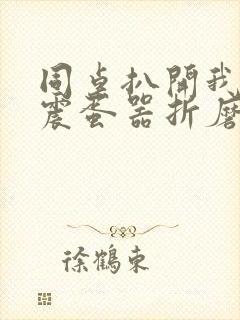 同桌扒開我
震蛋器折磨
徐鶴東